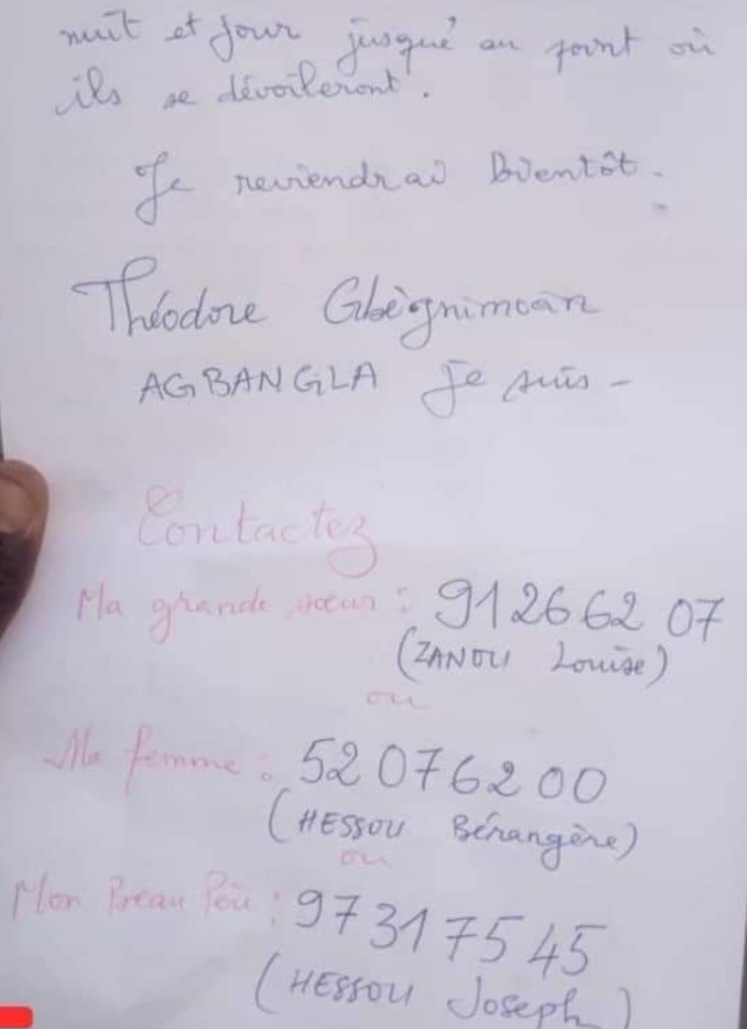 nuit et jour jusqué au point où
ils se dévoileront.
Je reviendrai Bientôt.
Théodore Gbègnimoàn
AGBANGLA je suis -
Contactez
Ma grande sœur : 91 26 62 07
(ZANOU Louise)
ou
Ma femme : 52 07 62 00
(HESSOU Bérangère)
ou
Mon Beau Père : 97 31 75 45
(HESSOU Joseph)